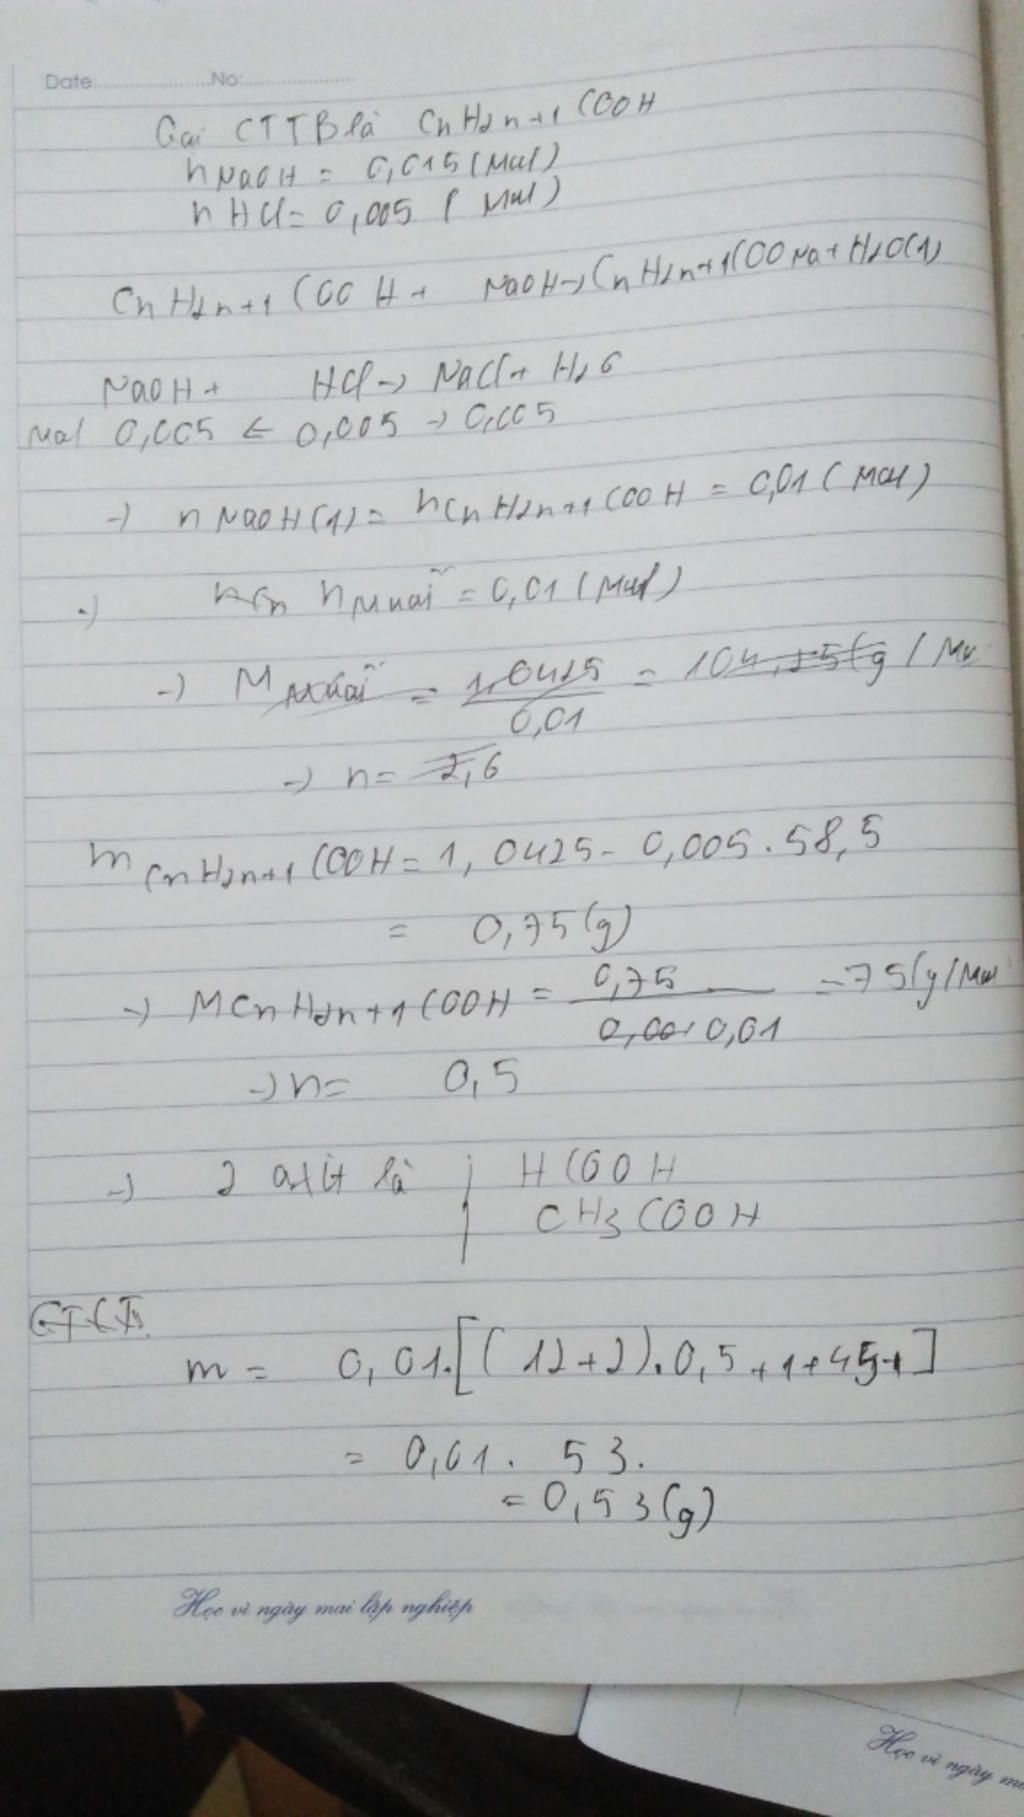 Date:............No:............
Gọi CTTB là CnH2n+1 COOH
nNaOH = 0,015 (Mol)
nHCl = 0,005 ( Mol)
CnH2n+1 COOH + NaOH → CnH2n+1 COONa + H2O(1)
NaOH + HCl → NaCl + H2O
Mol 0,005 ← 0,005 → 0,005
→ nNaOH(1) = nCnH2n+1 COOH = 0,01 ( Mol)
→ nCn nMuối = 0,01 (Mol)
→ M Muối = 1,0425 / 0,01 = 104,25 (g / Mol
→ n = 2,6
mCnH2n+1 COOH = 1,0425 - 0,005 . 58,5
= 0,75 (g)
→ MCnH2n+1 COOH = 0,75 / 0,01 = 75 (g/Mol
→ n = 0,5
→ 2 axit là HCOOH
CH3COOH
m = 0,01.[( 12+2).0,5+1+45]
= 0,01 . 53.
= 0,53 (g)
Học vì ngày mai lập nghiệp
Học vì ngày ma